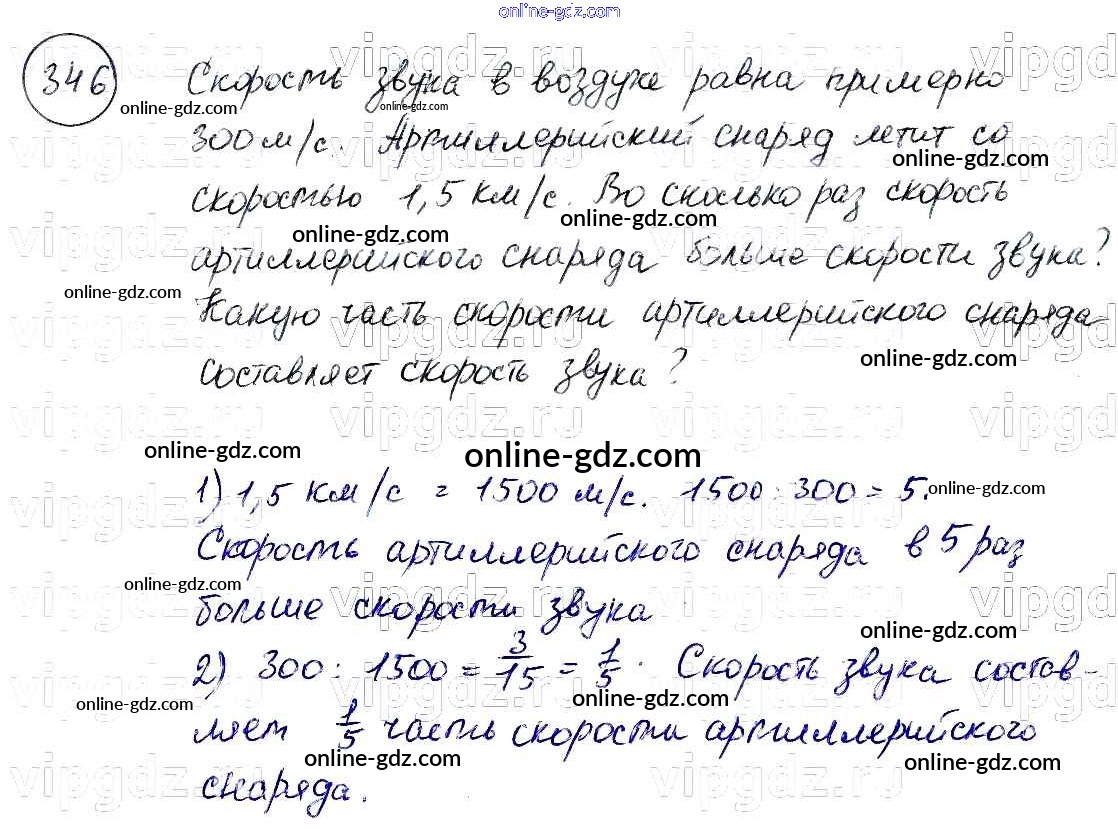 online-gdz.com
346 Скорость звука в воздухе равна примерно
300 м/с. Артиллерийский снаряд летит со
скоростью 1,5 км/с. Во сколько раз скорость
артиллерийского снаряда больше скорости звука?
Какую часть скорости артиллерийского снаряда
составляет скорость звука?
1) 1,5 км/с = 1500 м/с. 1500 : 300 = 5.
Скорость артиллерийского снаряда в 5 раз
больше скорости звука
2) 300 : 1500 = 3/15 = 1/5. Скорость звука состав-
ляет 1/5 часть скорости артиллерийского
снаряда.